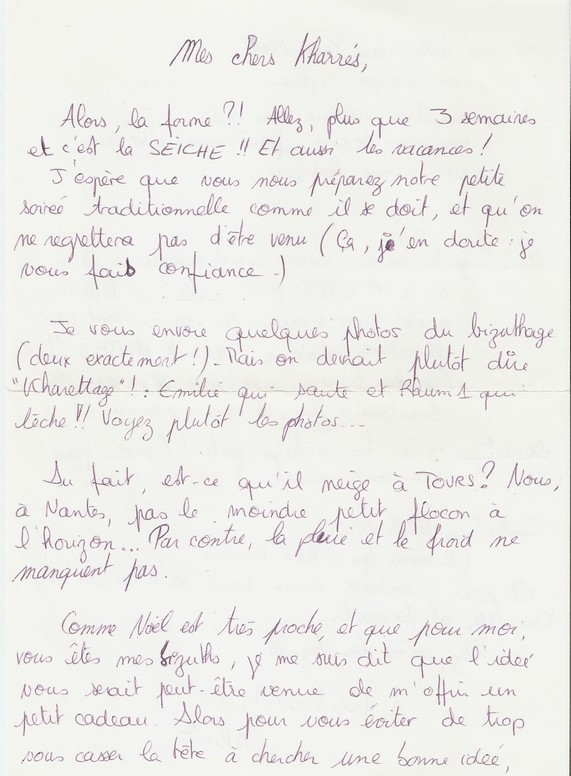 Mes chers Kharrés,
Alors, la forme ?! Allez, plus que 3 semaines
et c'est la SEICHE !! Et aussi les vacances !
J'espère que vous nous préparez notre petite
soireé traditionnelle comme il se doit, et qu'on
ne regrettera pas d'être venu (Ça, j'en doute : je
vous fais confiance.)
Je vous envoie quelques photos du bizuthage
(deux exactement !). Mais on devrait plutôt dire
"Kharettage" ! : Emilie qui saute et Rhum 1 qui
lèche !! Voyez plutôt les photos...
Au fait, est-ce qu'il neige à TOURS ? Nous,
à Nantes, pas le moindre petit flocon à
l'horizon... Par contre, la pluie et le froid ne
manquent pas.
Comme Noël est très proche, et que pour moi,
vous êtes mes bizuths, je me suis dit que l'ideé
vous serait peut-être venue de m'offrir un
petit cadeau. Alors pour vous éviter de trop
vous casser la tête à chercher une bonne ideé,